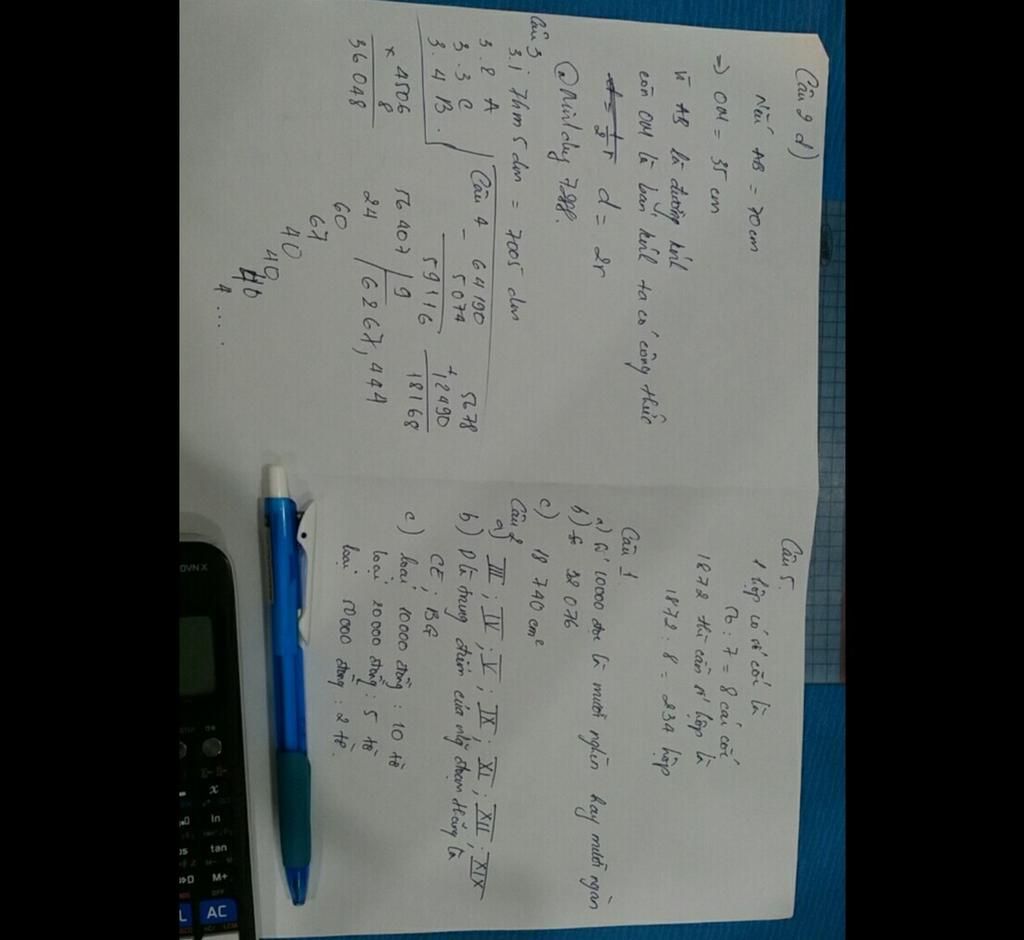 Câu 2 d)
Nếu AB = 70 cm
=> OM = 35 cm
Vì AB là đường kính
còn OM là bán kính ta có công thức
d = 1/2 r d = 2r
@Minhchy 7288.
Câu 3:
3.1 7hm 5 dm = 7005 dm
3.2 A
3.3 C
3.4 B.
Câu 4
- 64190
5074
59116
5678
+ 12490
18168
x 4506
8
36048
56407 | 9
24 | 6267,444
60
67
40
40
40
4....
Câu 5.
1 hộp có số cốc là
56 : 7 = 8 cái cốc
1872 thì cần số hộp là
1872 : 8 = 234 hộp
Câu 1.
a) Số 10000 đọc là mười nghìn hay mười ngàn
b) 32 076
c) 18 740 cm²
Câu 2
a) III ; IV ; V ; IX ; XI ; XII ; XIX
b) D là trung điểm của mỗi đoạn thẳng là
CE ; BG
c) loại 10000 đồng : 10 tờ
loại 20000 đồng : 5 tờ
loại 50000 đồng : 2 tờ.
OVNX
x
ln
tan
M+
AC